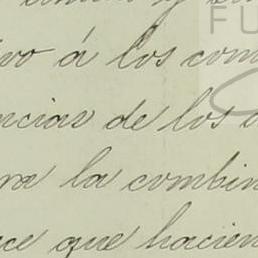 vo á los com
ncias de los
ra la combin
ce que hacien